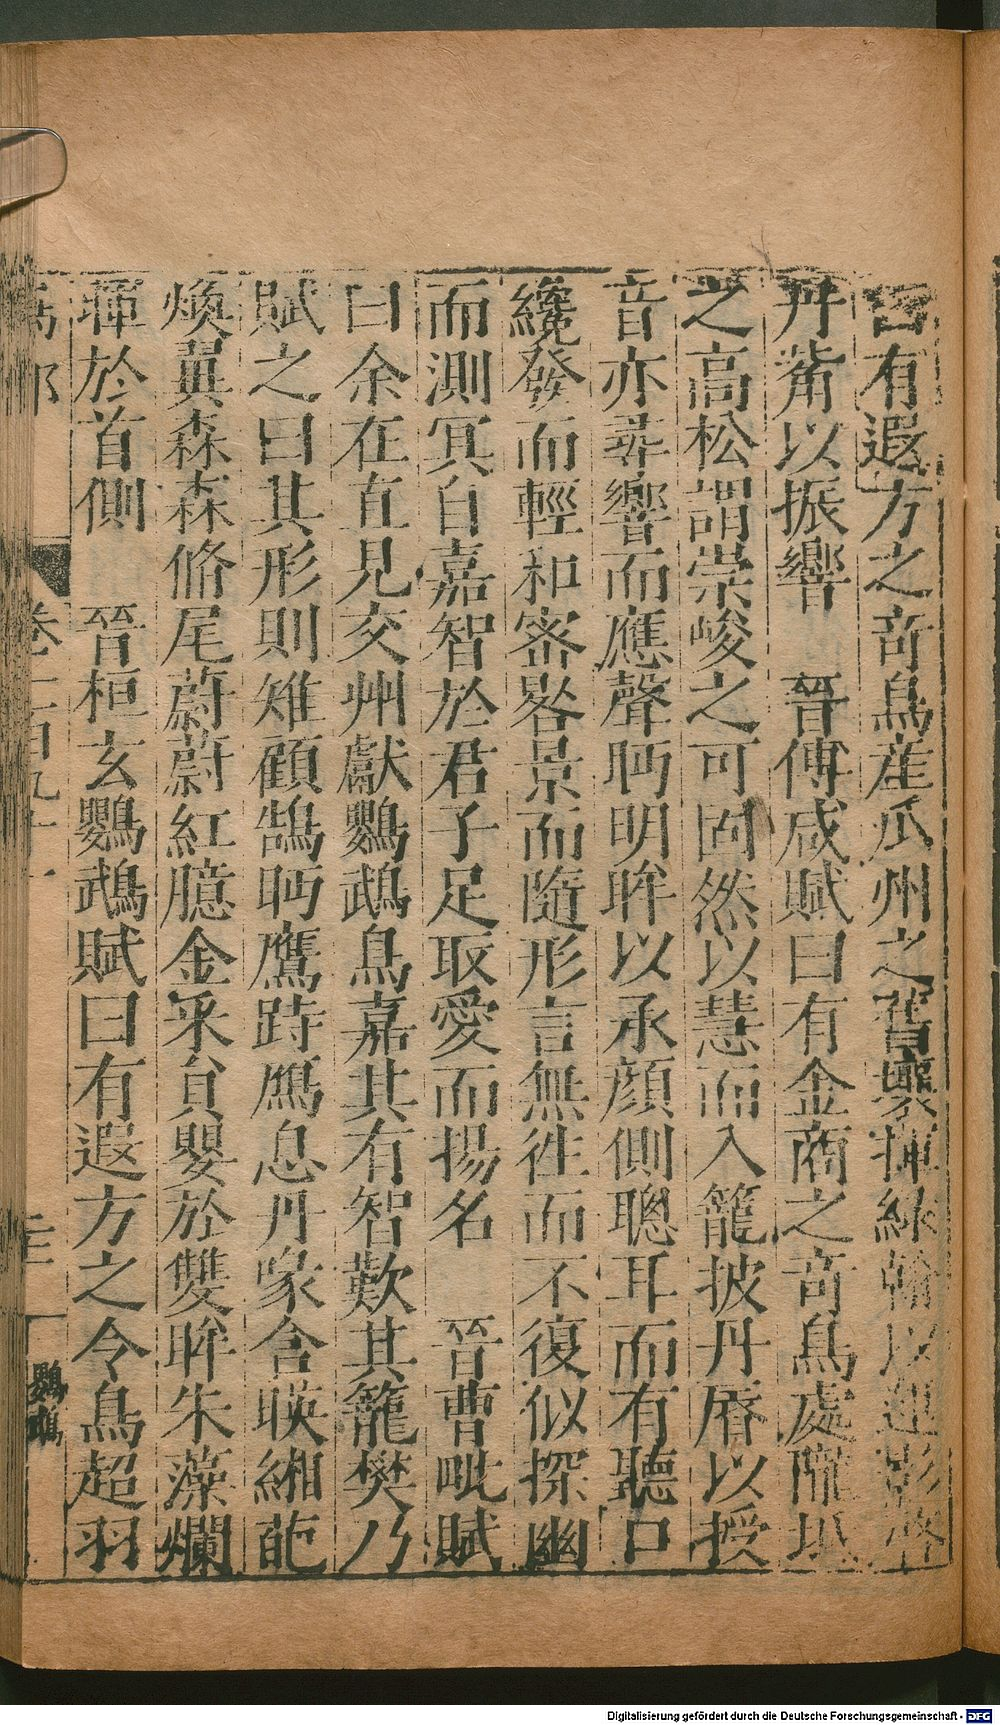 曰有遐方之奇鳥産瓜州之舊壤揮綠翰以運影啓
丹觜以振響　晉傅咸賦曰有金商之奇鳥處隴坻
之高松謂崇峻之可固然以慧而入籠披丹脣以授
音亦尋響而應聲眄明眸以承顏側聰耳而有聽口
纔發而輕和密晷景而隨形言無徃而不復似探幽
而測冥自嘉智於君子足取愛而揚名　晉曹毗賦
曰余在直見交州獻鸚鵡鳥嘉其有智歎其籠樊乃
賦之曰其形則雉顧鵠眄鷹跱鴈息丹喙含暎緗葩
煥翼森森脩尾蔚蔚紅臆金采貟嬰於雙眸朱藻爛
暉於首側　晉桓玄鸚鵡賦曰有遐方之令鳥超羽
鳥部
卷二百九十一
鸚鵡
Digitalisierung gefördert durch die Deutsche Forschungsgemeinschaft - DFG